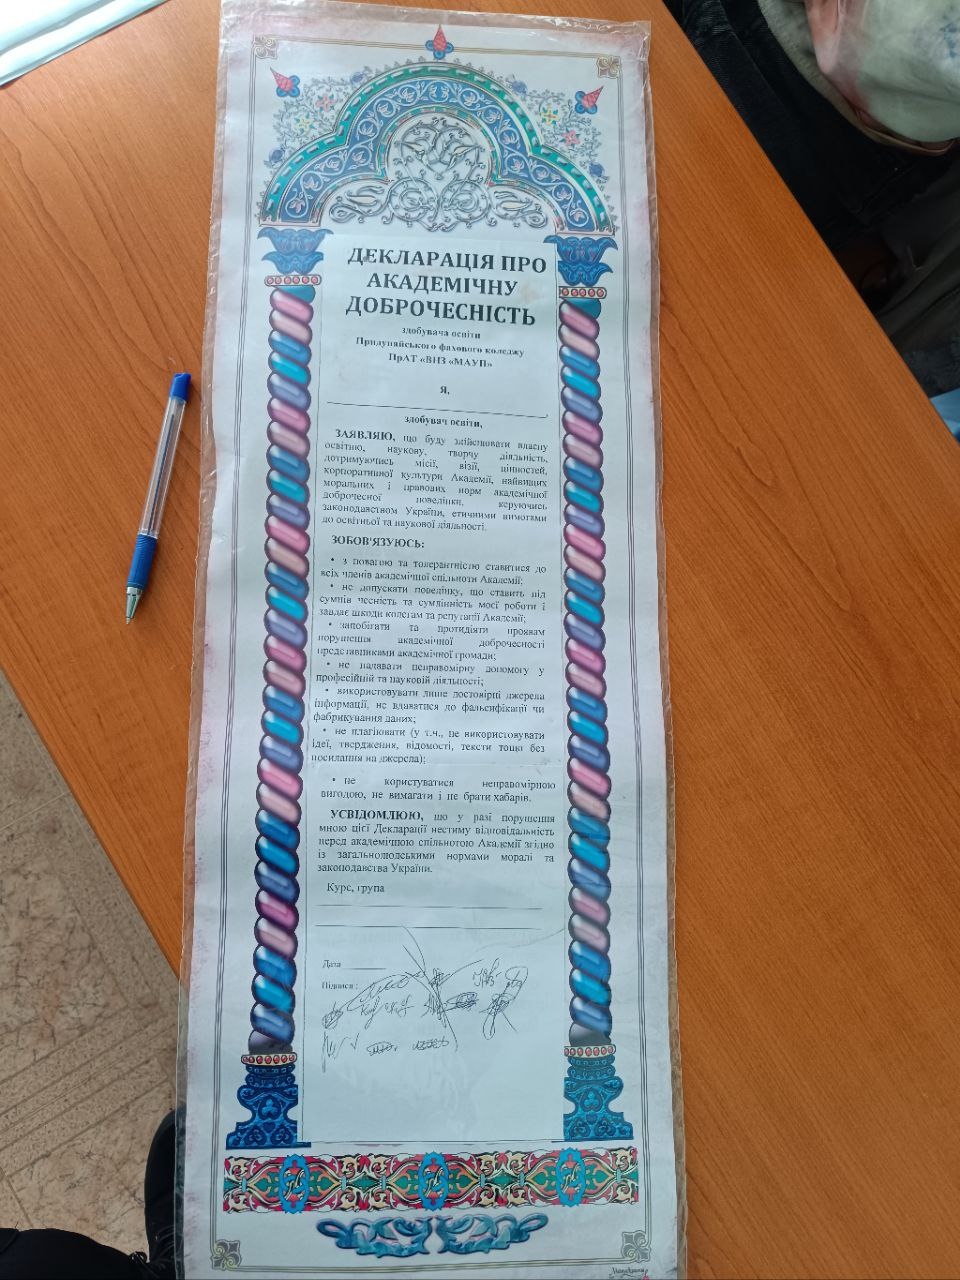 ДЕКЛАРАЦІЯ ПРО
АКАДЕМІЧНУ
ДОБРОЧЕСНІСТЬ
здобувача освіти
Придунайського фахового коледжу
ПрАТ «ВНЗ «МАУП»
Я,
здобувач освіти,
ЗАЯВЛЯЮ, що буду здійснювати власну
освітню, наукову, творчу діяльність,
дотримуючись місії, візії, цінностей,
корпоративної культури Академії, найвищих
моральних і правових норм академічної
доброчесної поведінки, керуючись
законодавством України, етичними вимогами
до освітньої та наукової діяльності.
ЗОБОВ'ЯЗУЮСЬ:
• з повагою та толерантністю ставитися до
всіх членів академічної спільноти Академії;
• не допускати поведінку, що ставить під
сумнів чесність та сумлінність моєї роботи і
завдає шкоди колегам та репутації Академії;
• запобігати та протидіяти проявам
порушення академічної доброчесності
представниками академічної громади;
• не надавати неправомірну допомогу у
професійній та науковій діяльності;
• використовувати лише достовірні джерела
інформації, не вдаватися до фальсифікації чи
фабрикування даних;
• не плагіювати (у т.ч., не використовувати
ідеї, твердження, відомості, тексти тощо без
посилання на джерела);
• не користуватися неправомірною
вигодою, не вимагати і не брати хабарів.
УСВІДОМЛЮЮ, що у разі порушення
мною цієї Декларації нестиму відповідальність
перед академічною спільнотою Академії згідно
із загальнолюдськими нормами моралі та
законодавства України.
Курс, група
Дата
Підписи :